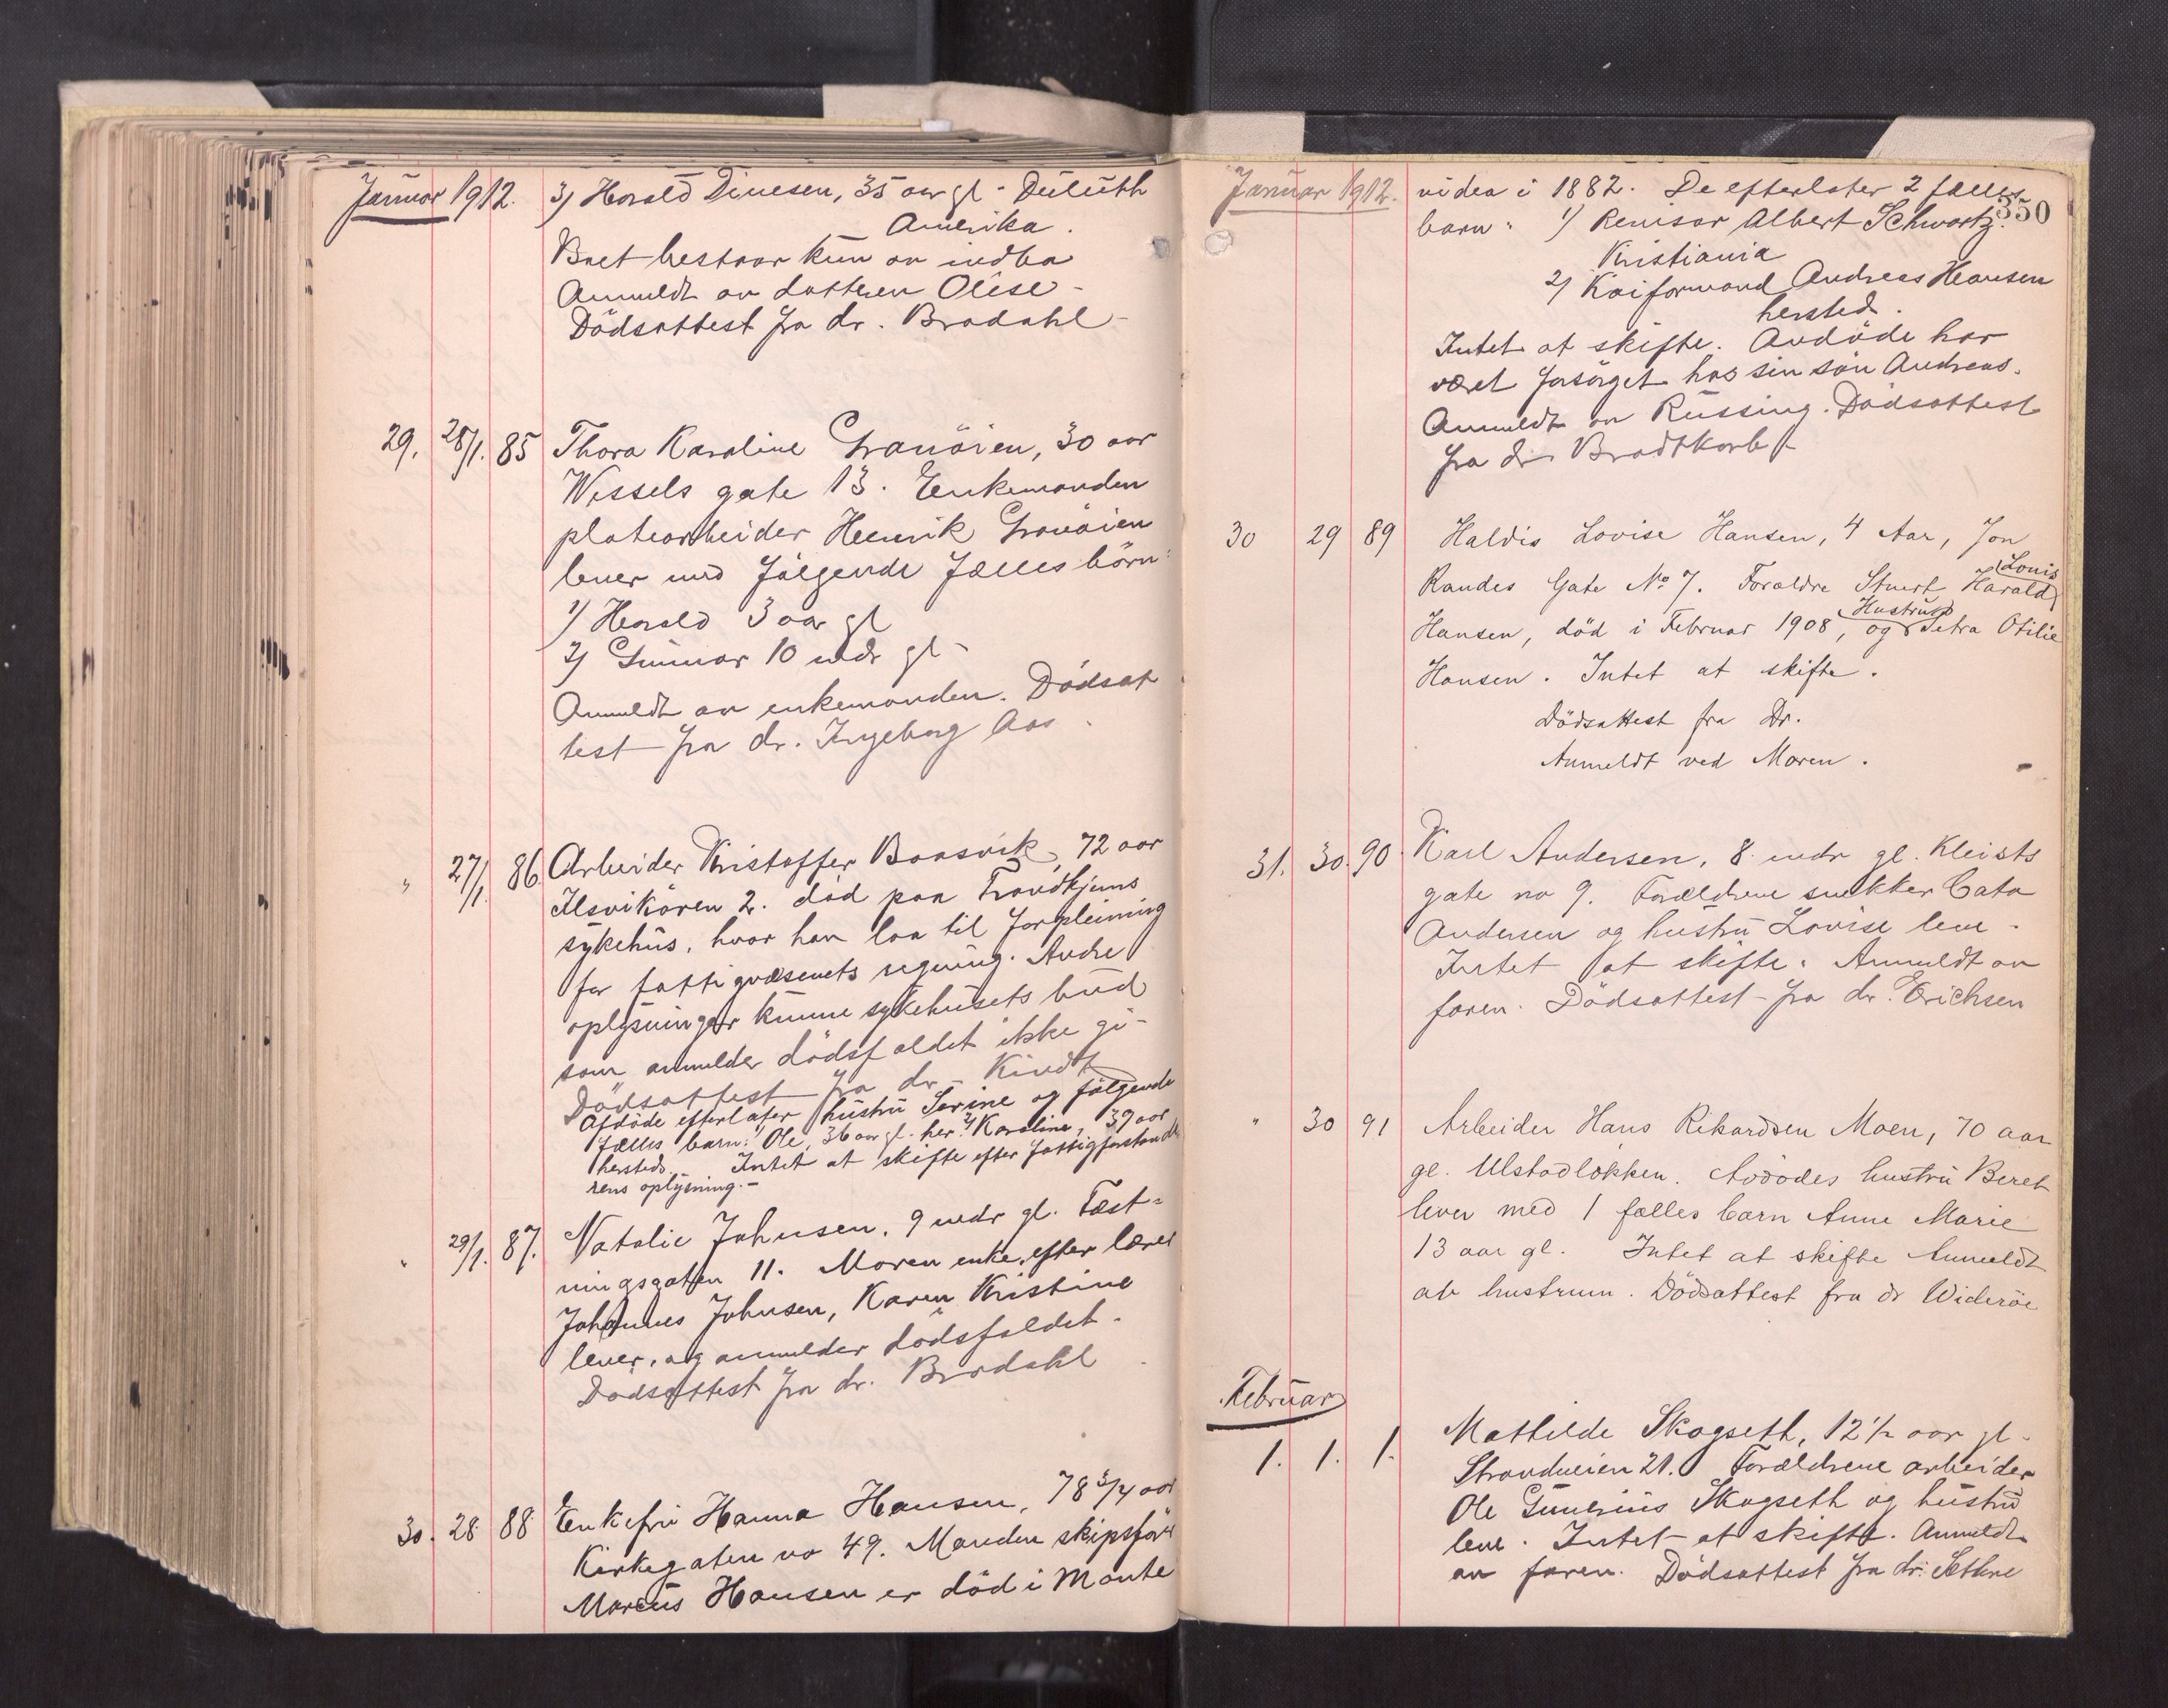 Januar 1912.
3) Harald Dinesen, 35 aar gl - Duluth
Amerika.
Boet bestaar kun av indbo
Anmeldt av datteren Olise -
Dödsattest fra dr. Brodahl -
29. 28/1. 85 Thora Karoline Granöien, 30 aar
Wessels gate 13. Enkemanden
platearbeider Henrik Granöien
lever med følgende fælles börn:
1) Harald 3 aar gl
2) Gunnar 10 mdr gl -
Anmeldt av enkemanden. Dödsat
test fra dr. Ingeborg Aas.
" 27/1. 86. Arbeider Kristoffer Baasvik, 72 aar
Ilsvikören 2. död paa Trondhjems
sykehus, hvor han laa til forpleining
for fattigvæsenets regning. Andre
oplysninger kunne sykehusets bud
som anmelder dödsfaldet ikke gi -
Dödsattest fra dr. Kindt
Afdöde efterlater hustru Serine og følgende
fælles barn: 1) Ole, 36 aar gl. her. 2) Karoline, 39 aar
hersteds. - Intet at skifte efter fattigforstande
rens oplysning. -
" 29/1. 87. Natalie Johnsen, 9 mdr gl. Fæst-
ningsgaten 11. Moren enke efter lærer
Johannes Johnsen, Karen Kristine
lever, og anmelder dödsfaldet.
Dödsattest fra dr. Brodahl
30. 28. 88 Enkefru Hanna Hansen, 78 3/4 aar
Kirkegaten no 49. Manden skipsför
Marcus Hansen er död i Monte
Januar 1912.
350
video i 1882. De efterlater 2 fælles
barn: 1) Revisor Albert Schwartz.
Kristiania
2) Kaiformand Andreas Hansen
hersteds.
Intet at skifte. Avdöde har
været forsörget hos sin sön Andreas.
Anmeldt av Russing. Dödsattest
fra dr Bradtkorb
30 29 89 Haldis Lovise Hansen, 4 Aar, Jon
Raudes Gate No 7. Forældre Stuert Harald Louis
Hansen, död i Februar 1908, og Hustru Petra Otilie
Hansen. Intet at skifte.
Dödsattest fra Dr.
Anmeldt ved Moren.
31. 30. 90. Karl Andersen, 8 mdr gl. Kleists
gate no 9. Forældrene snekker Cato
Andersen og hustru Lovise leve -
Intet at skifte. Anmeldt av
faren. Dödsattest fra dr. Erichsen
" 30 91 Arbeider Hans Rikardsen Moen, 70 aar
gl. Ulstadløkken. Avdödes hustru Beret
lever med 1 fælles barn Anne Marie
13 aar gl. Intet at skifte Anmeldt
av hustruen. Dödsattest fra dr Wideröe
Februar
1. 1. 1. Mathilde Skogseth, 12 1/2 aar gl -
Strandveien 21. Forældrene arbeider
Ole Gunerius Skogseth og hustru
leve. Intet at skifte. Anmeldt
av faren. Dödsattest fra dr. Sethre